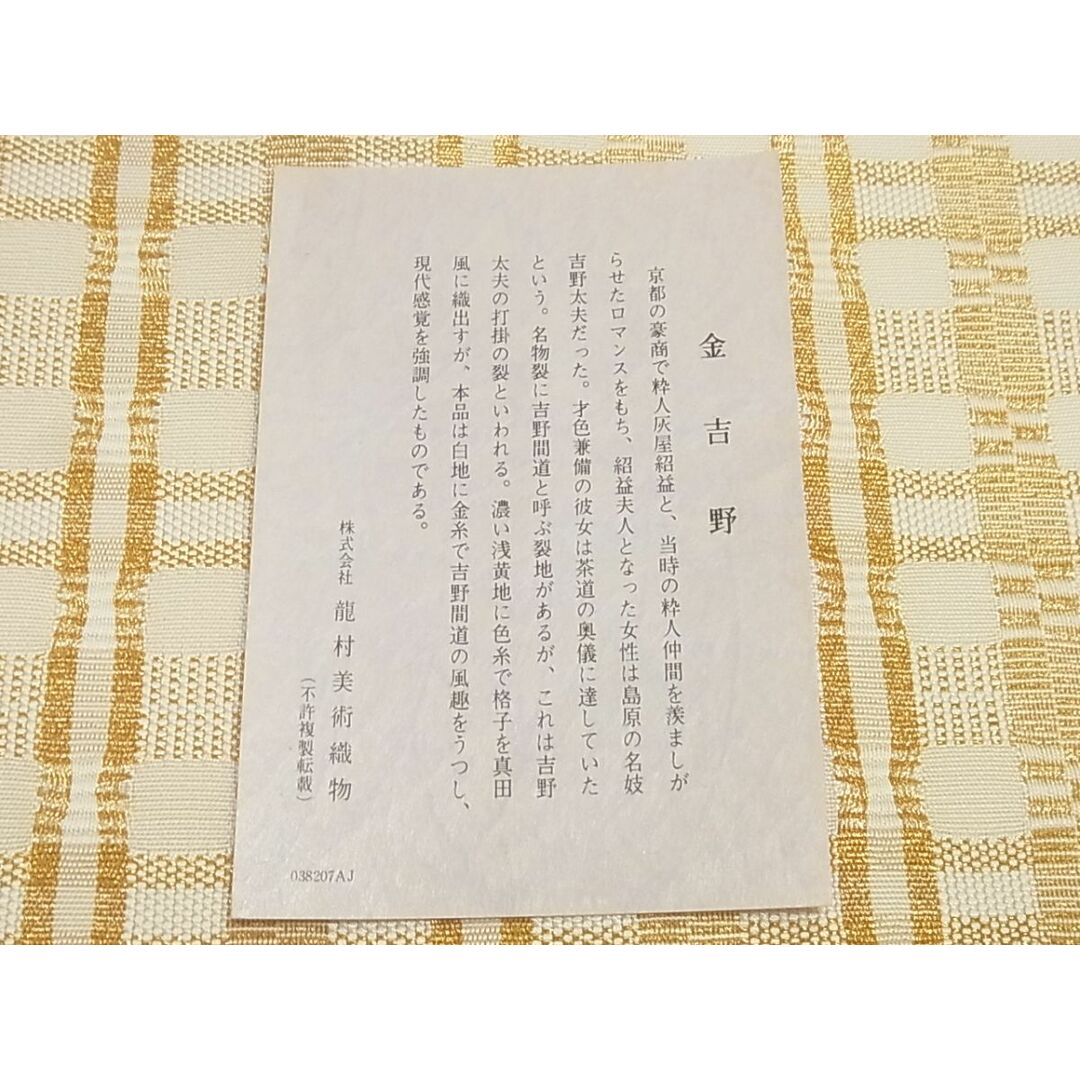 金吉野
京都の豪商で粋人灰屋紹益と、当時の粋人仲間を羨ましが
らせたロマンスをもち、紹益夫人となった女性は島原の名妓
吉野太夫だった。才色兼備の彼女は茶道の奥儀に達していた
という。名物裂に吉野間道と呼ぶ裂地があるが、これは吉野
太夫の打掛の裂といわれる。濃い浅黄地に色糸で格子を真田
風に織出すが、本品は白地に金糸で吉野間道の風趣をうつし、
現代感覚を強調したものである。
株式会社 龍村美術織物
（不許複製転載）
038207AJ